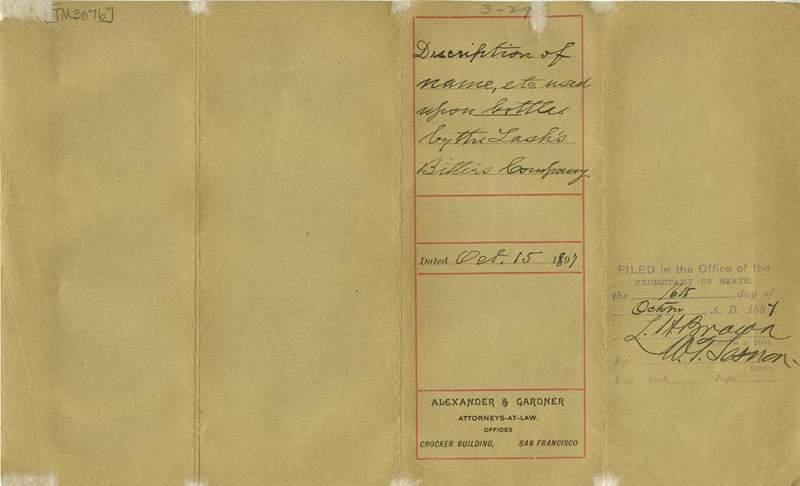 [TM3076]
3-29
Description of
name, etc used
upon bottles
by the Lash's
Bitters Company
Dated Oct. 15 1897
ALEXANDER & GARDNER
ATTORNEYS-AT-LAW.
OFFICES
CROCKER BUILDING, SAN FRANCISCO
FILED in the Office of the
SECRETARY OF STATE.
the 16th day of
A. D. 1897
L. H. Brown
By W. T. Sesnon
DEPUTY.
Book, Page,